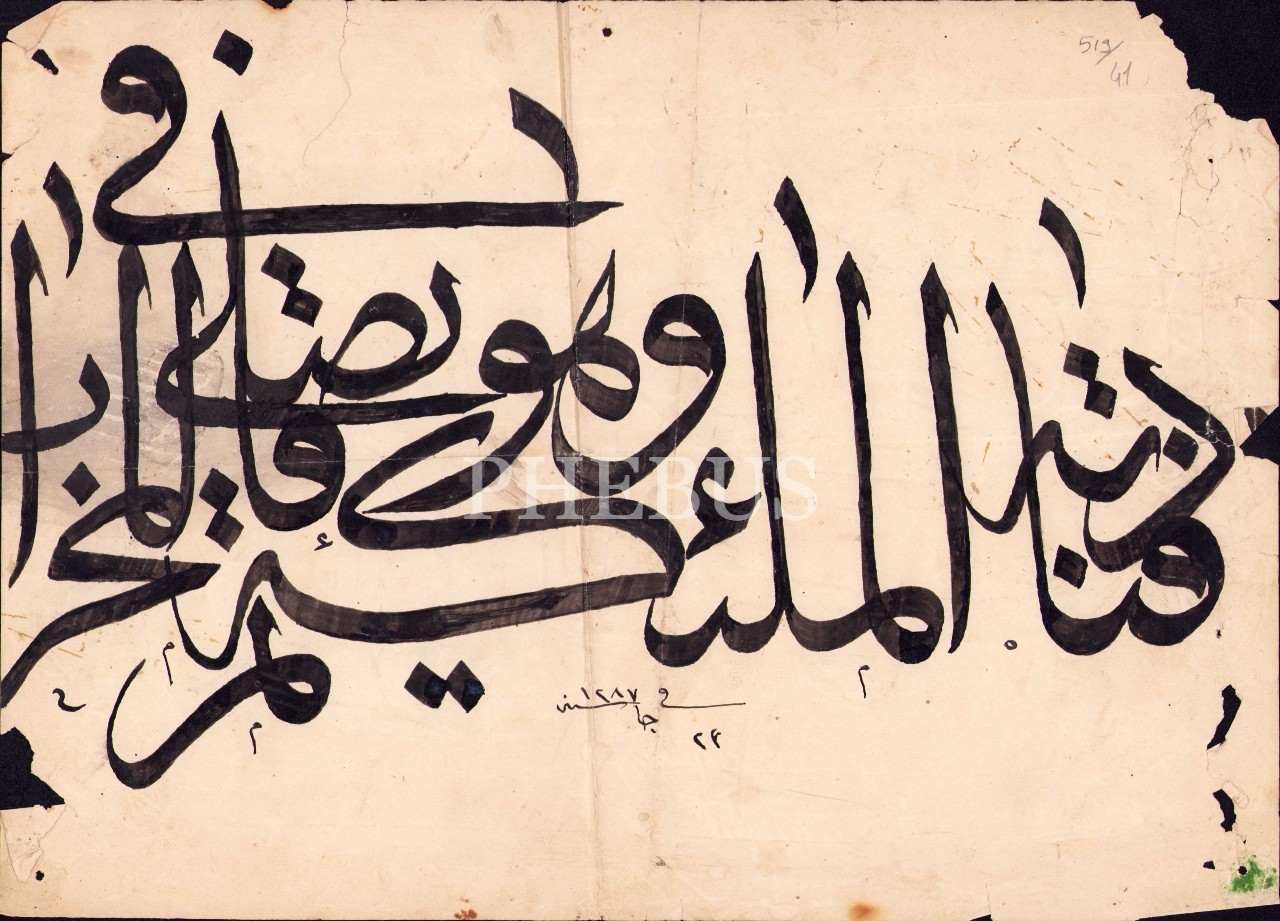 519/41
فنادته الملئكة وهو قائم يصلي في المحراب
PHEBUS
في ٢٤ جا سنة ١٢٨٧